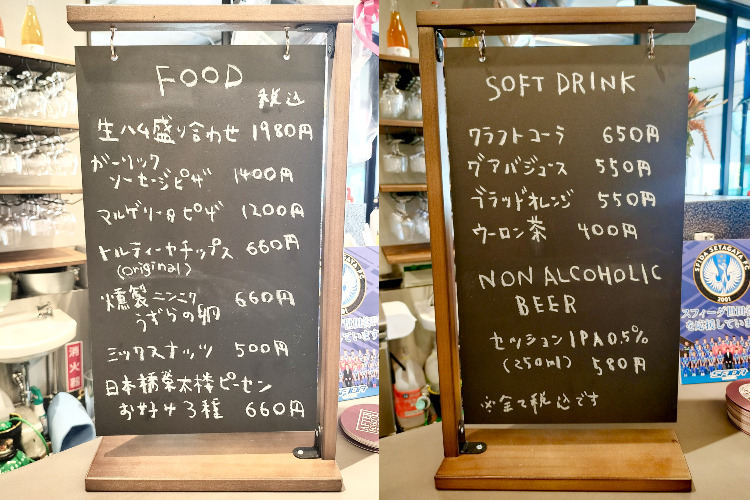 FOOD
税込
生ハム盛り合わせ 1980円
ガーリック
ソーセージピザ 1400円
マルゲリータピザ 1200円
トルティーヤチップス 660円
(original)
燻製ニンニク 660円
うずらの卵
ミックスナッツ 500円
日本橋榮太樓ピーセン
お好み3種 660円
消火器
SOFT DRINK
クラフトコーラ 650円
グアバジュース 550円
ブラッドオレンジ 550円
ウーロン茶 400円
NON ALCOHOLIC
BEER
セッションIPA0.5%
(250ml) 580円
※全て税込です
SFIDA SETAGAYA FC
2001
スフィーダ世田谷
を応援しています